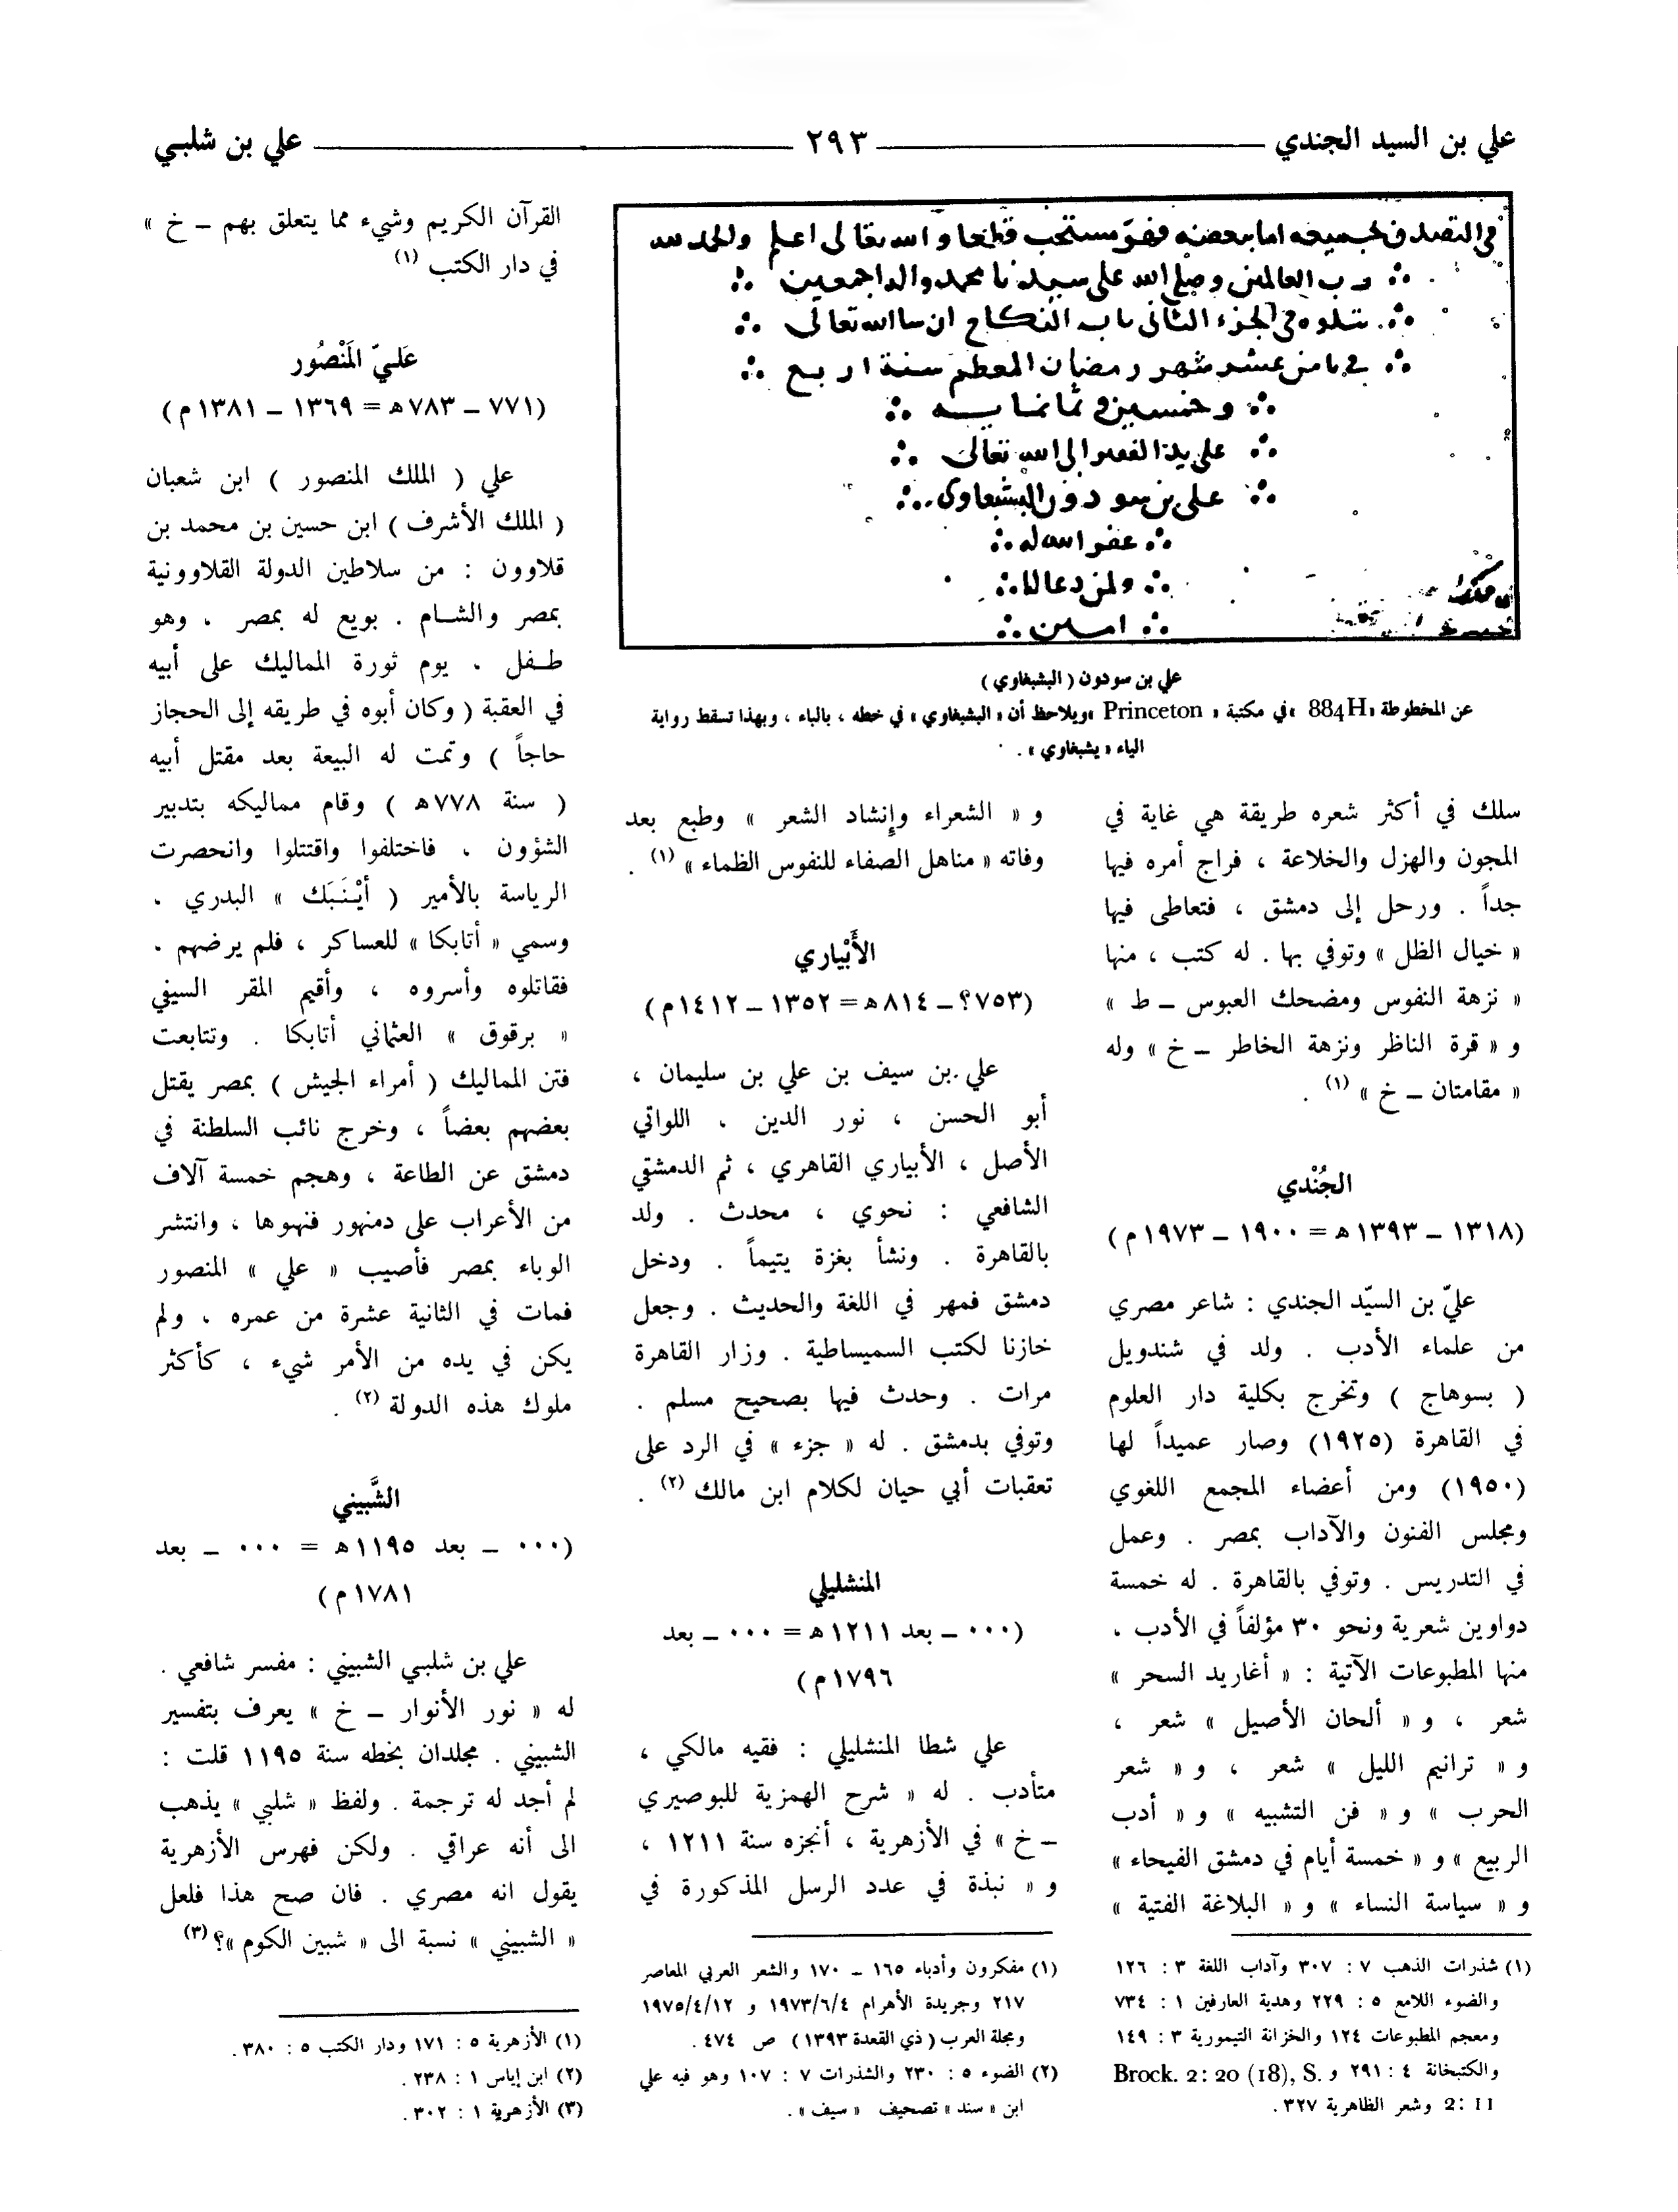 علي بن السيد الجندي ٢٩٣ علي بن شلبي
في التصدق بجميعه اما ببعضه فهو مستحب قطعا والله تعالى اعلم والحمد لله
رب العالمين وصلى الله على سيدنا محمد واله اجمعين
يتلوه في الجزء الثاني باب النكاح ان شا الله تعالى
في ثامن عشر شهر رمضان المعظم سنة اربع
وخمسين وثمانمايه
على يد الفقير الى الله تعالى
على بن سودون البشبغاوى
غفر الله له
ولمن دعا له
امين
علي بن سودون ( البشبغاوي )
عن المخطوطة «884H» في مكتبة « Princeton » ويلاحظ أن « البشبغاوي » في خطه ، بالباء ، وبهذا تسقط رواية
الياء « يشبغاوي » .
سلك في أكثر شعره طريقة هي غاية في
المجون والهزل والخلاعة ، فراج أمره فيها
جداً . ورحل إلى دمشق ، فتعاطى فيها
« خيال الظل » وتوفي بها . له كتب ، منها
« نزهة النفوس ومضحك العبوس ــ ط »
و « قرة الناظر ونزهة الخاطر ــ خ » وله
« مقامتان ــ خ » (١) .
الجُنْدي
(١٣١٨ ــ ١٣٩٣ هـ = ١٩٠٠ ــ ١٩٧٣ م)
عليّ بن السيّد الجندي : شاعر مصري
من علماء الأدب . ولد في شندويل
( بسوهاج ) وتخرج بكلية دار العلوم
في القاهرة (١٩٢٥) وصار عميداً لها
(١٩٥٠) ومن أعضاء المجمع اللغوي
ومجلس الفنون والآداب بمصر . وعمل
في التدريس . وتوفي بالقاهرة . له خمسة
دواوين شعرية ونحو ٣٠ مؤلفاً في الأدب ،
منها المطبوعات الآتية : « أغاريد السحر »
شعر ، و « ألحان الأصيل » شعر ،
و « ترانيم الليل » شعر ، و « شعر
الحرب » و « فن التشبيه » و « أدب
الربيع » و « خمسة أيام في دمشق الفيحاء »
و « سياسة النساء » و « البلاغة الفتية »
(١) شذرات الذهب ٧ : ٣٠٧ وآداب اللغة ٣ : ١٢٦
والضوء اللامع ٥ : ٢٢٩ وهدية العارفين ١ : ٧٣٤
ومعجم المطبوعات ١٢٤ والخزانة التيمورية ٣ : ١٤٩
والكتبخانة ٤ : ٢٩١ و Brock. 2: 20 (18), S.
2: 11 وشعر الظاهرية ٣٢٧ .
و « الشعراء وإنشاد الشعر » وطبع بعد
وفاته « مناهل الصفاء للنفوس الظماء » (١) .
الأَبْياري
(٧٥٣؟ ــ ٨١٤ هـ = ١٣٥٢ ــ ١٤١٢ م)
علي بن سيف بن علي بن سليمان ،
أبو الحسن ، نور الدين ، اللواتي
الأصل ، الأبياري القاهري ، ثم الدمشقي
الشافعي : نحوي ، محدث . ولد
بالقاهرة . ونشأ بغزة يتيماً . ودخل
دمشق فمهر في اللغة والحديث . وجعل
خازنا لكتب السميساطية . وزار القاهرة
مرات . وحدث فيها بصحيح مسلم .
وتوفي بدمشق . له « جزء » في الرد على
تعقبات أبي حيان لكلام ابن مالك (٢) .
المنشليلي
(٠٠٠ ــ بعد ١٢١١ هـ = ٠٠٠ ــ بعد
١٧٩٦ م)
علي شطا المنشليلي : فقيه مالكي ،
متأدب . له « شرح الهمزية للبوصيري
ــ خ » في الأزهرية ، أنجزه سنة ١٢١١ ،
و « نبذة في عدد الرسل المذكورة في
(١) مفكرون وأدباء ١٦٥ ــ ١٧٠ والشعر العربي المعاصر
٢١٧ وجريدة الأهرام ١٩٧٣/٦/٤ و ١٩٧٥/٤/١٢
ومجلة العرب ( ذي القعدة ١٣٩٣ ) ص ٤٧٤ .
(٢) الضوء ٥ : ٢٣٠ والشذرات ٧ : ١٠٧ وهو فيه علي
ابن « سند » تصحيف « سيف » .
القرآن الكريم وشيء مما يتعلق بهم ــ خ »
في دار الكتب (١)
عَليّ المَنْصُور
(٧٧١ ــ ٧٨٣ هـ = ١٣٦٩ ــ ١٣٨١ م)
علي ( الملك المنصور ) ابن شعبان
( الملك الأشرف ) ابن حسين بن محمد بن
قلاوون : من سلاطين الدولة القلاوونية
بمصر والشام . بويع له بمصر ، وهو
طفل ، يوم ثورة المماليك على أبيه
في العقبة ( وكان أبوه في طريقه إلى الحجاز
حاجاً ) وتمت له البيعة بعد مقتل أبيه
( سنة ٧٧٨ هـ ) وقام مماليكه بتدبير
الشؤون ، فاختلفوا واقتتلوا وانحصرت
الرياسة بالأمير ( أَيْنَبَك » البدري ،
وسمي « أتابكا » للعساكر ، فلم يرضهم ،
فقاتلوه وأسروه ، وأقيم المقر السيفي
« برقوق » العثماني أتابكا . وتتابعت
فتن المماليك ( أمراء الجيش ) بمصر يقتل
بعضهم بعضاً ، وخرج نائب السلطنة في
دمشق عن الطاعة ، وهجم خمسة آلاف
من الأعراب على دمنهور فنهبوها ، وانتشر
الوباء بمصر فأصيب « علي » المنصور
فمات في الثانية عشرة من عمره ، ولم
يكن في يده من الأمر شيء ، كأكثر
ملوك هذه الدولة (٢) .
الشَّبيني
(٠٠٠ ــ بعد ١١٩٥ هـ = ٠٠٠ ــ بعد
١٧٨١ م)
علي بن شلبي الشبيني : مفسر شافعي .
له « نور الأنوار ــ خ » يعرف بتفسير
الشبيني . مجلدان بخطه سنة ١١٩٥ قلت :
لم أجد له ترجمة . ولفظ « شلبي » يذهب
الى أنه عراقي . ولكن فهرس الأزهرية
يقول انه مصري . فان صح هذا فلعل
« الشبيني » نسبة الى « شبين الكوم »؟ (٣)
(١) الأزهرية ٥ : ١٧١ ودار الكتب ٥ : ٣٨٠ .
(٢) ابن إياس ١ : ٢٣٨ .
(٣) الأزهرية ١ : ٣٠٢ .